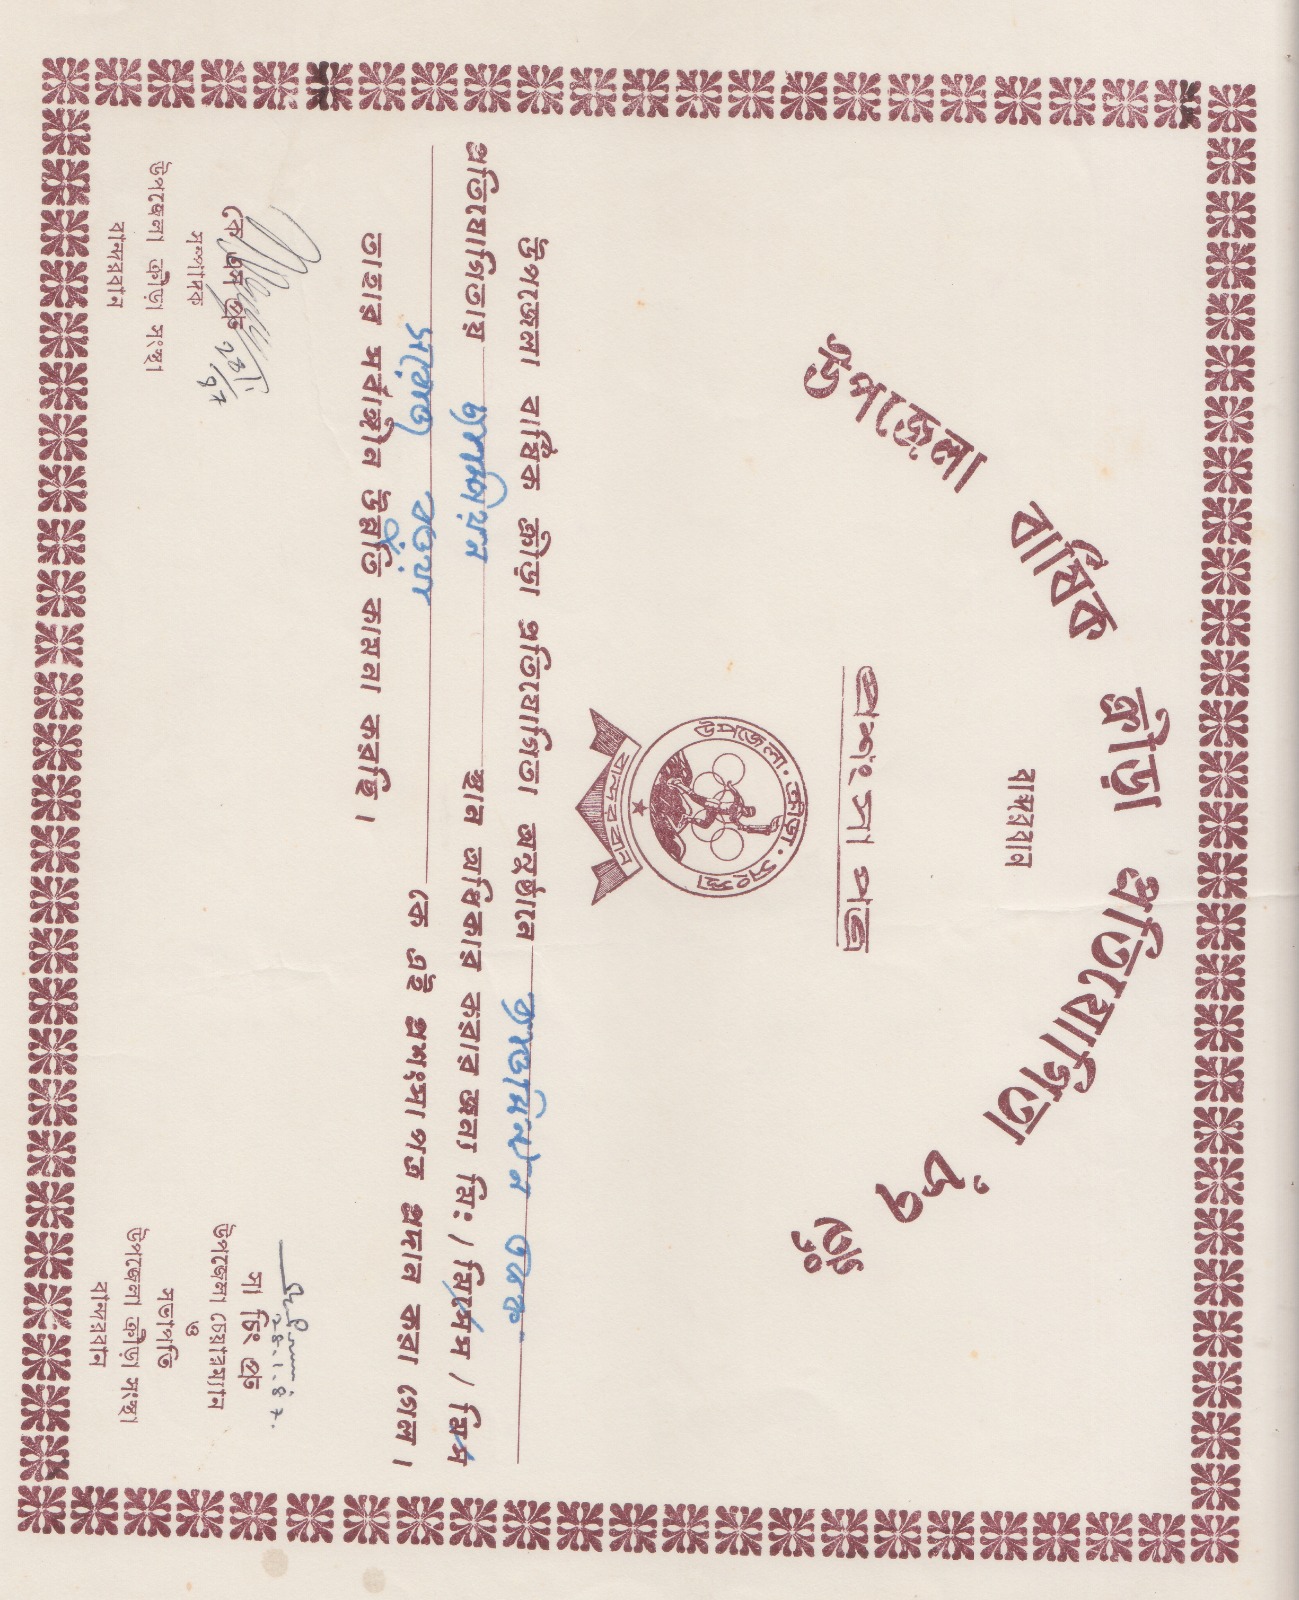 উপজেলা বার্ষিক ক্রীড়া প্রতিযোগিতা ৮৭ ইং
বান্দরবান
প্রশংসা পত্র
উপজেলা · ক্রীড়া · সংস্থা
বান্দরবান
উপজেলা বার্ষিক ক্রীড়া প্রতিযোগিতা অনুষ্ঠানে ব্যাডমিন্টন একক
প্রতিযোগিতায় চ্যাম্পিয়ন স্থান অধিকার করার জন্য মিঃ / মিসেস / মিস
সরোজ বড়ুয়া কে এই প্রশংসা পত্র প্রদান করা গেল।
তাহার সর্বাঙ্গীন উন্নতি কামনা করছি।
28/1/87
কে এস প্রু
সম্পাদক
উপজেলা ক্রীড়া সংস্থা
বান্দরবান
28.1.87.
সা চিং প্রু
উপজেলা চেয়ারম্যান
ও
সভাপতি
উপজেলা ক্রীড়া সংস্থা
বান্দরবান